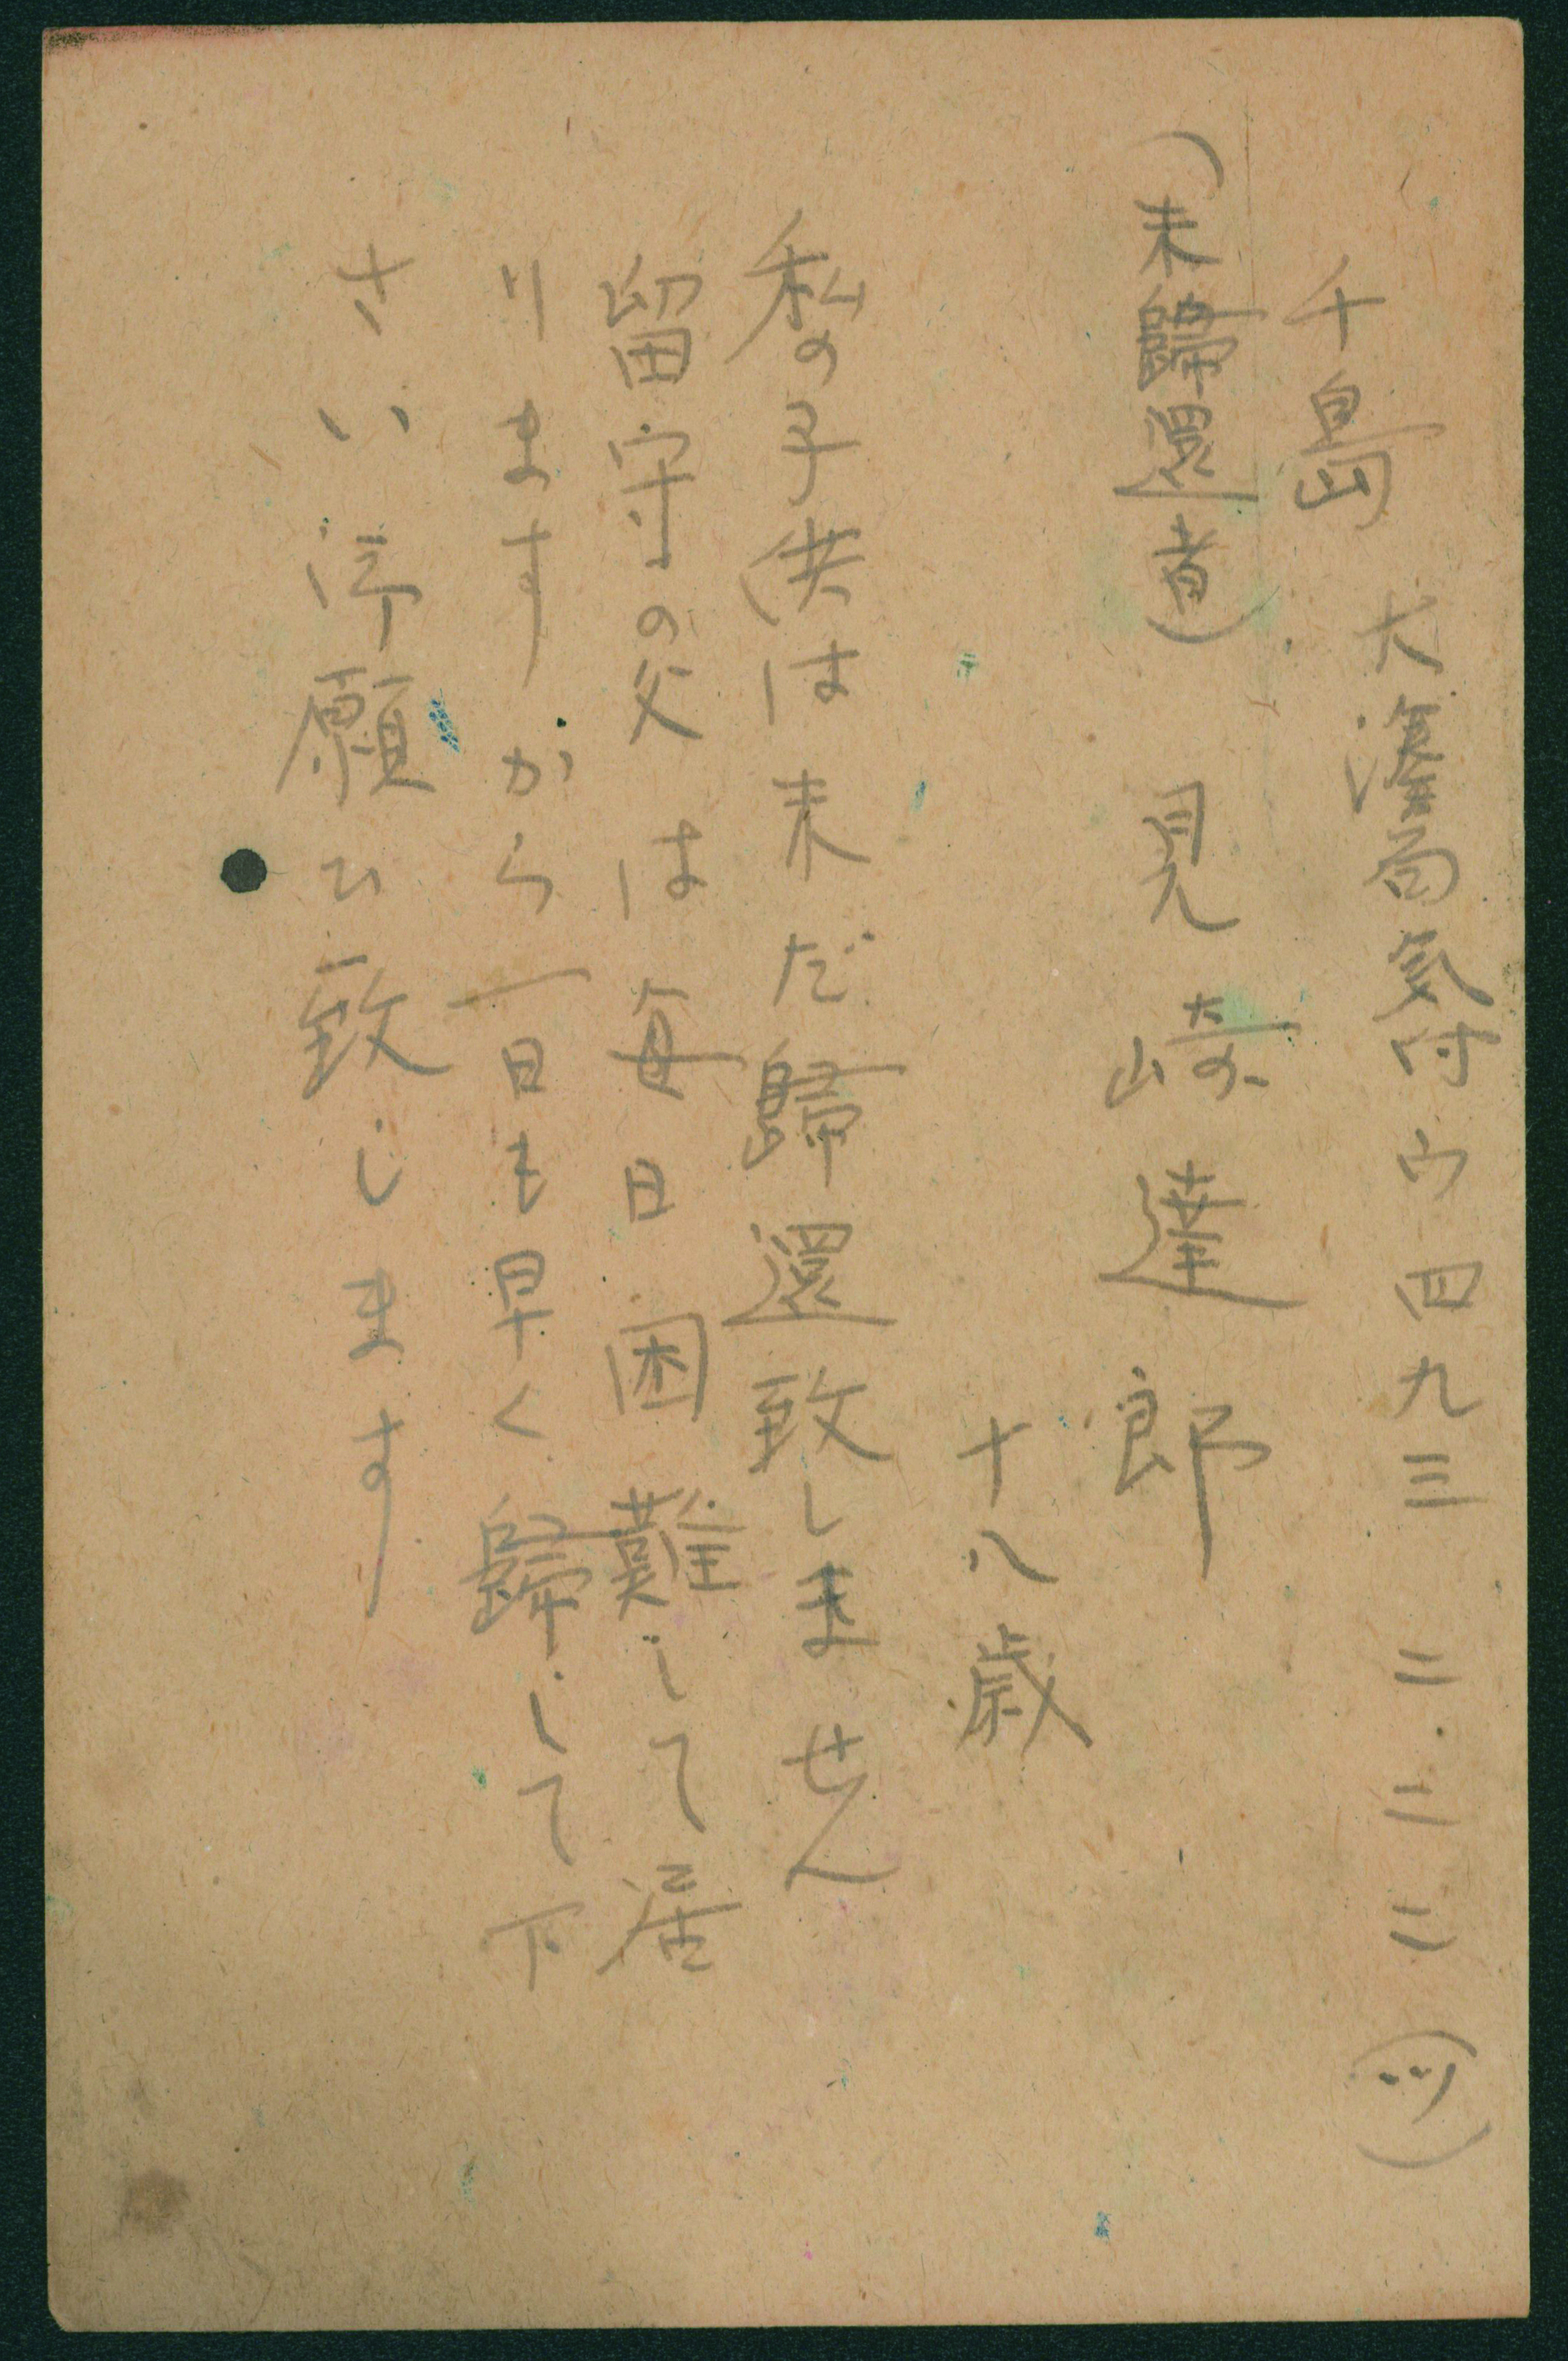 千島 大湊局気付ウ四九三 二二二(ツ)
(未歸還者) 見崎達郎
十八歳
私の子供は未だ歸還致しません
留守の父は毎日困難して居
りますから一日も早く歸して下
さい御願ひ致します